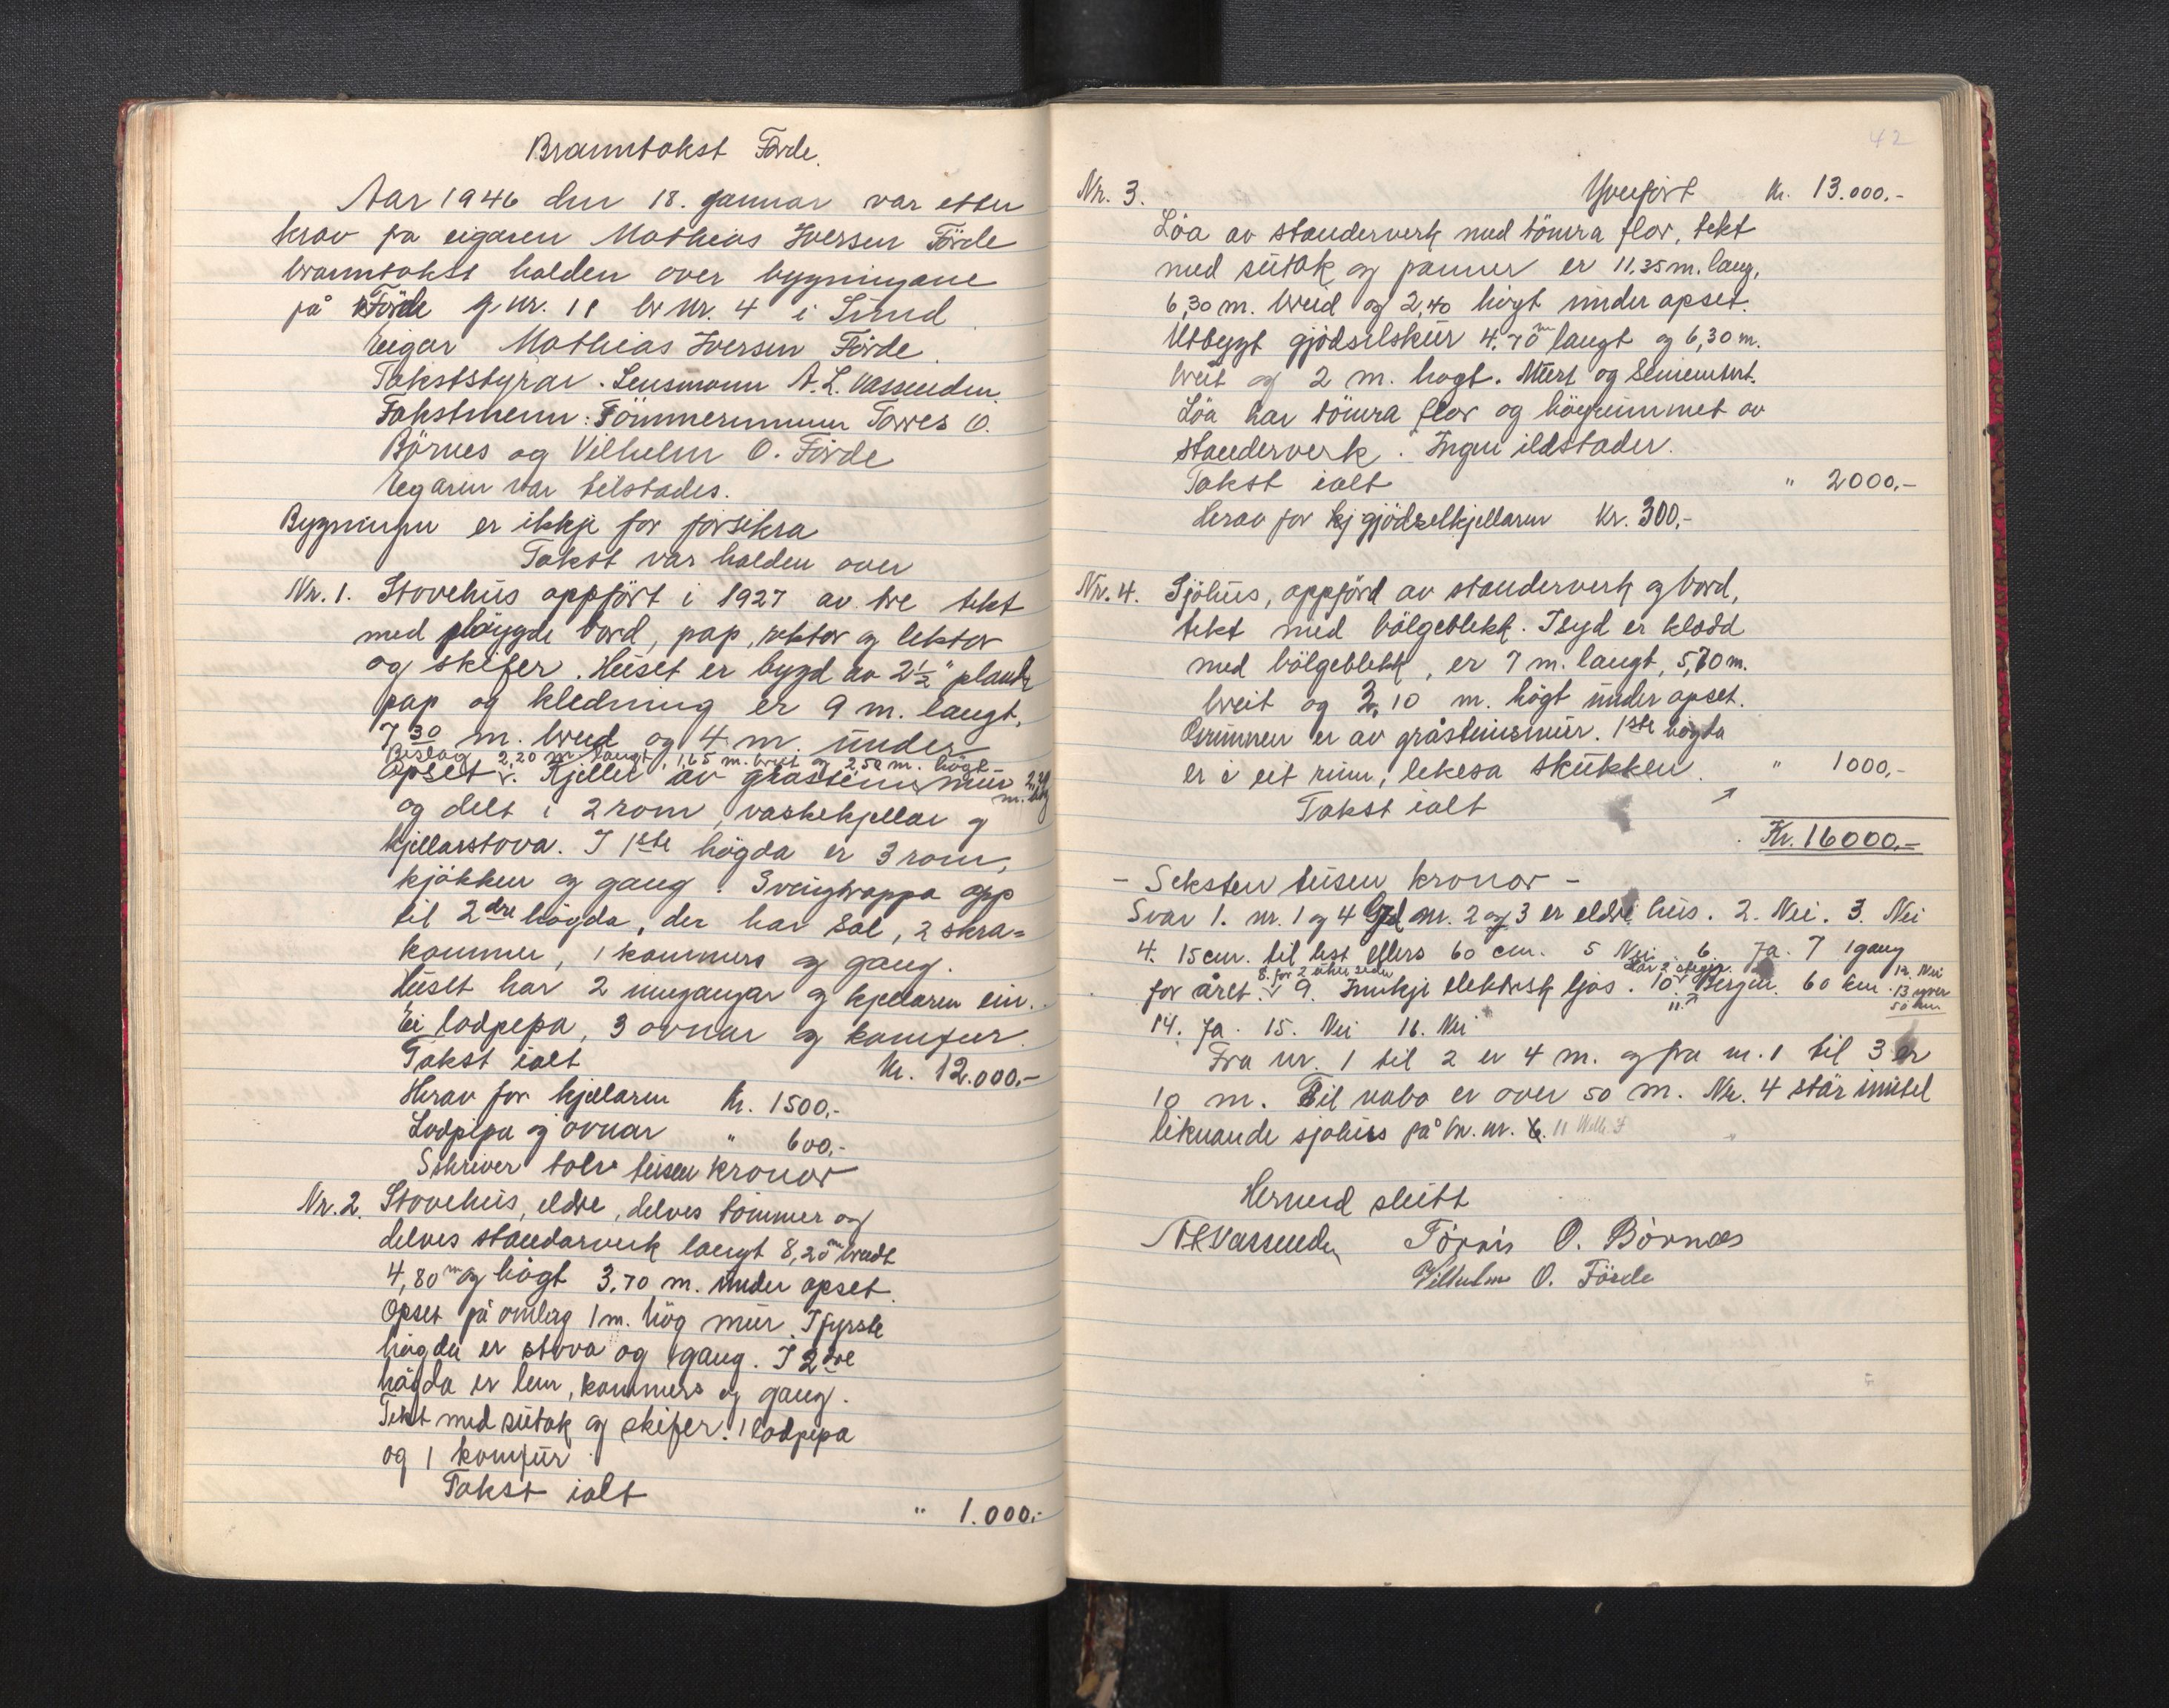 Branntakst Förde.
Aar 1946 den 18. januar var etter
krav fra eigaren Mathias Iversen Förde
branntakst halden over bygningane
på Förde g nr. 11 br nr. 4 i Sund
Eigar Mathias Iversen Förde.
Takststyrar. Lensmann A. L. Vassenden.
Takstmenn: Tömmermenn Torres O.
Börnes og Vilhelm O. Förde
Eigaren var tilstades.
Bygningen er ikkje för forsikra
Takst var halden over
Nr. 1. Stovehus oppfört i 1927 av tre tekt
med pløygde bord, pap, rektor og lektor
og skifer. Huset er bygd av 2½" plank
pap og kledning er 9 m. langt,
7 30 m. breid og 4 m. under
Bislag 2,20 m langt, 1,65 m. breit og 2,50 m. högt
Opset v. Kjeller av gråsteins mur 2,20
m. högg
og delt i 2 rom, vaskekjellar og
kjellarstova. I 1ste högda er 3 rom,
kjökken og gang. Svingtrappa opp
til 2dre högda, der har Sal, 2 skra=
kammer, 1 kammers og gang.
Huset har 2 inngangar og kjellaren ein.
Ei lodpepa, 3 ovnar og komfur.
Takst ialt Kr. 12.000.-
Herav for kjellaren Kr. 1500,-
Lodpipa og ovnar " 600,-
Skriver tolv tusen kronor
Nr. 2. Stovehus, eldre, delves tömmer og
delves standarverk langt 8,20 m breidt
4,80 m og högt 3,70 m. under opset.
Opset på omlag 1 m. hög mur. I fyrste
högda er stova og gang. I 2dre
högda er lem, kammers og gang.
Tekt med sutak og skifer. 1 lodpepa
og 1 komfur
Takst ialt
" 1.000.-
42
Nr. 3. Yverfört Kr. 13.000.-
Löa av standerverk med tömra flor, tekt
med sutak og panner er 11,35 m. lang,
6,30 m. breid og 2,40 högt under opset.
Utbygt gjödselskur 4.70 m langt og 6,30 m.
breit og 2 m. hogt. Murt og sementert.
Löa har tömra flor og höyrummet av
standerverk. Ingen ildstader.
Takst ialt " 2000,-
Herav for kj gjödselkjellaren Kr. 300,-
Nr. 4. Sjöhus, oppförd av standerverk og bord,
tekt med bölgeblekk. I syd er kledd
med bölgeblekk, er 7 m. langt, 5,70 m.
breit og 3,10 m. högt under opset.
Grunnen er av gråsteinsmur. 1ste högda
er i eit rum, lekesa skukken. " 1000,-
Takst ialt
Kr. 16000,-
- Seksten tusen kronor -
Svar 1. nr. 1 og 4 God nr. 2 og 3 er eldre hus. 2. Nei. 3. Nei
4. 15 cm. til lest ellers 60 cm. 5 Nei. 6. Ja. 7 1 gang
for året. 8. for 2 uker sidan 9. Innkje elektrisk ljos. 10 Har 2 stiger. 11. Bergen. 60 km. 12. Nei
13 yver
50 km
14. Ja. 15. Nei 16. Nei
Fra nr. 1 til 2 er 4 m. og fra nr. 1 til 3 er
10 m. Til nabo er over 50 m. Nr. 4 står inntil
liknande sjöhus på br. nr. 11
Hermed slutt
A L Vassenden Törris O. Börnæs
Vilhelm O. Förde